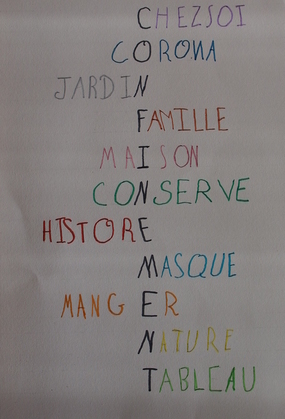 CHEZSOI
CORONA
JARDIN
FAMILLE
MAISON
CONSERVE
HISTORE
MASQUE
MANGER
NATURE
TABLEAU